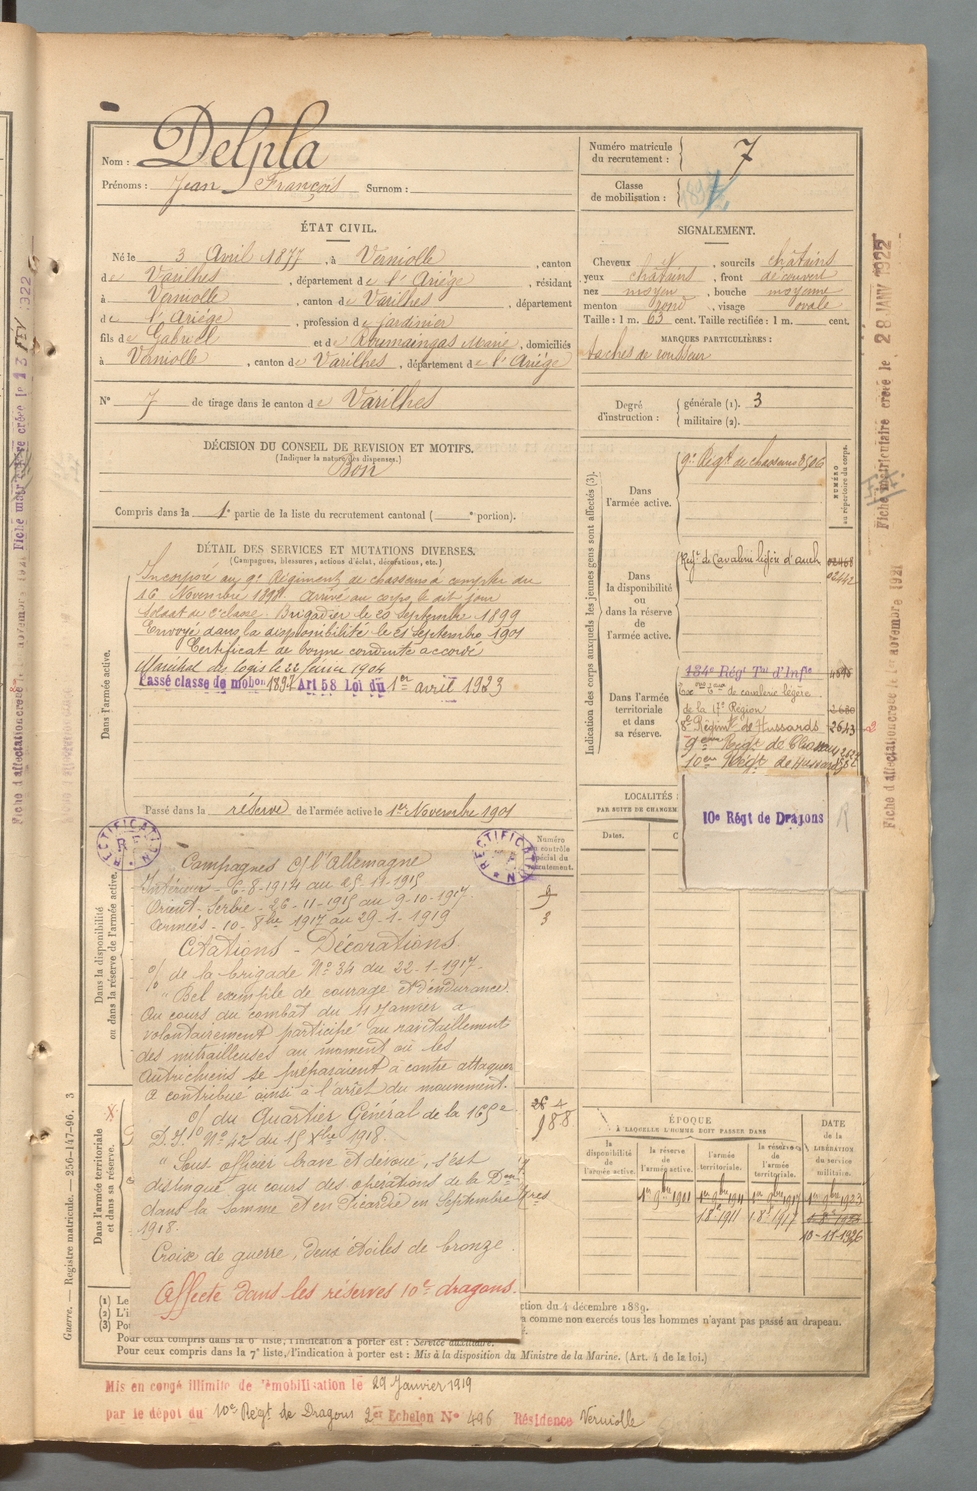 Nom : Delpla
Prénoms : Jean François Surnom :
Numéro matricule du recrutement : 7
Classe de mobilisation :
ÉTAT CIVIL.
Né le 3 Avril 1877, à Verniolle, canton
de Varilhes, département de l'Ariège, résidant
à Verniolle, canton de Varilhes, département
de l'Ariége, profession de jardinier
fils de Gabriel et de Roumaingas Marie, domiciliés
à Verniolle, canton de Varilhes, département de l'Ariége
N° 7 de tirage dans le canton de Varilhes
SIGNALEMENT.
Cheveux et, sourcils châtains
yeux châtains, front découvert
nez moyen, bouche moyenne
menton rond, visage ovale
Taille : 1 m. 63 cent. Taille rectifiée : 1 m. cent.
MARQUES PARTICULIÈRES :
taches de rousseur
Degré d'instruction : générale (1). 3
militaire (2).
DÉCISION DU CONSEIL DE REVISION ET MOTIFS.
(Indiquer la nature des dispenses.)
Bon
Compris dans la 1e partie de la liste du recrutement cantonal ( e portion).
DÉTAIL DES SERVICES ET MUTATIONS DIVERSES.
(Campagnes, blessures, actions d'éclat, décorations, etc.)
Dans l'armée active.
Incorporé au 9e Régiment de chasseurs à compter du
16 Novembre 1898 arrivé au corps le dit jour
soldat de 2e classe. Brigadier le 20 Septembre 1899
Envoyé dans la disponibilité le 21 Septembre 1901
Certificat de bonne conduite accordé
Maréchal des logis le 22 février 1904
Passé classe de mobon 1897 Art 58 Loi du 1er avril 1923
Passé dans la réserve de l'armée active le 1er Novembre 1901
Indication des corps auxquels les jeunes gens sont affectés (3).
NUMÉRO au répertoire du corps.
Dans l'armée active.
9e Régt de chasseurs 3506
Dans la disponibilité ou dans la réserve de l'armée active.
Regt de Cavalerie légère d'auch 02468
02442
Dans l'armée territoriale et dans sa réserve.
134e Régt Tal d'Infie
de cavalerie légère
de la 17e Région 2680
8e Régimt de Hussards 2643
9ème Regt de Chasseurs
10eme Régt de Hussards
LOCALITÉS
PAR SUITE DE CHANGEM
Dates.
10e Régt de Dragons
R
RECTIFICATION
RECTIFICATION
Numéro au contrôle spécial du recrutement.
Dans la disponibilité ou dans la réserve de l'armée active.
Campagnes c/ l'Allemagne
Intérieur - 6-8-1914 au 25-11-1915
Orient-Serbie - 26-11-1915 au 9-10-1917
Armées - 10-8bre 1917 au 29-1-1919
Citations - Décorations
o/ de la brigade N° 34 du 22-1-1917-
"Bel exemple de courage et d'endurance.
Au cours du combat du 11 Janvier a
volontairement participé au ravitaillement
des mitrailleuses au moment où les
Autrichiens se préparaient à contre attaquer
a contribué ainsi à l'arrêt du mouvement.
o/ du Quartier Général de la 165e
D.I. N° 42 du 15 Xbre 1918.
"Sous officier brave et dévoué, s'est
distingué au cours des opérations de la Don
dans la Somme et en Picardie en Septembre
1918.
Croix de guerre, deux étoiles de bronze.
Affecté dans les réserves 10e dragons.
Dans l'armée territoriale et dans sa réserve.
188
ÉPOQUE
À LAQUELLE L'HOMME DOIT PASSER DANS
la disponibilité de l'armée active.
la réserve de l'armée active.
l'armée territoriale.
la réserve de l'armée territoriale.
DATE de la LIBÉRATION du service militaire.
1er 9bre 1901 1er 9bre 1911 1er 9bre 1917 1er 9bre 1923
1 8e 1911 1 8e 1917
10-11-1926
(1) Le
(2) L'i
(3) Pou
ction du 4 décembre 1889.
a comme non exercés tous les hommes n'ayant pas passé au drapeau.
Pour ceux compris dans la 6e liste, l'indication à porter est : Service auxiliaire.
Pour ceux compris dans la 7e liste, l'indication à porter est : Mis à la disposition du Ministre de la Marine. (Art. 4 de la loi.)
Mis en congé illimité de démobilisation le 29 Janvier 1919
par le dépôt du 10e Régt de Dragons 2er Echelon N° 496 Résidence Verniolle
Guerre. — Registre matricule. — 256-147-96. 3
Fiche matriculaire créée le 28 JANV 1922
Fiche d'affectation créée le 1er novembre 1921